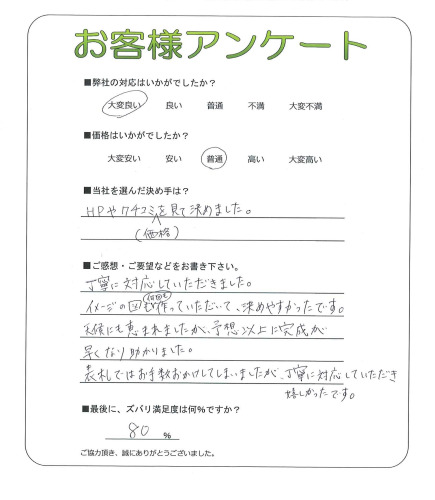 お客様アンケート
■弊社の対応はいかがでしたか？
大変良い 良い 普通 不満 大変不満
■価格はいかがでしたか？
大変安い 安い 普通 高い 大変高い
■当社を選んだ決め手は？
HPやクチコミを見て決めました。
(価格)
■ご感想・ご要望などをお書き下さい。
丁寧に対応していただきました。
何回も
イメージの図も作っていただいて、決めやすかったです。
天候にも恵まれましたが、予想以上に完成が
早くなり助かりました。
表札ではお手数おかけしてしまいましたが、丁寧に対応していただき
嬉しかったです。
■最後に、ズバリ満足度は何%ですか？
80 %
ご協力頂き、誠にありがとうございました。